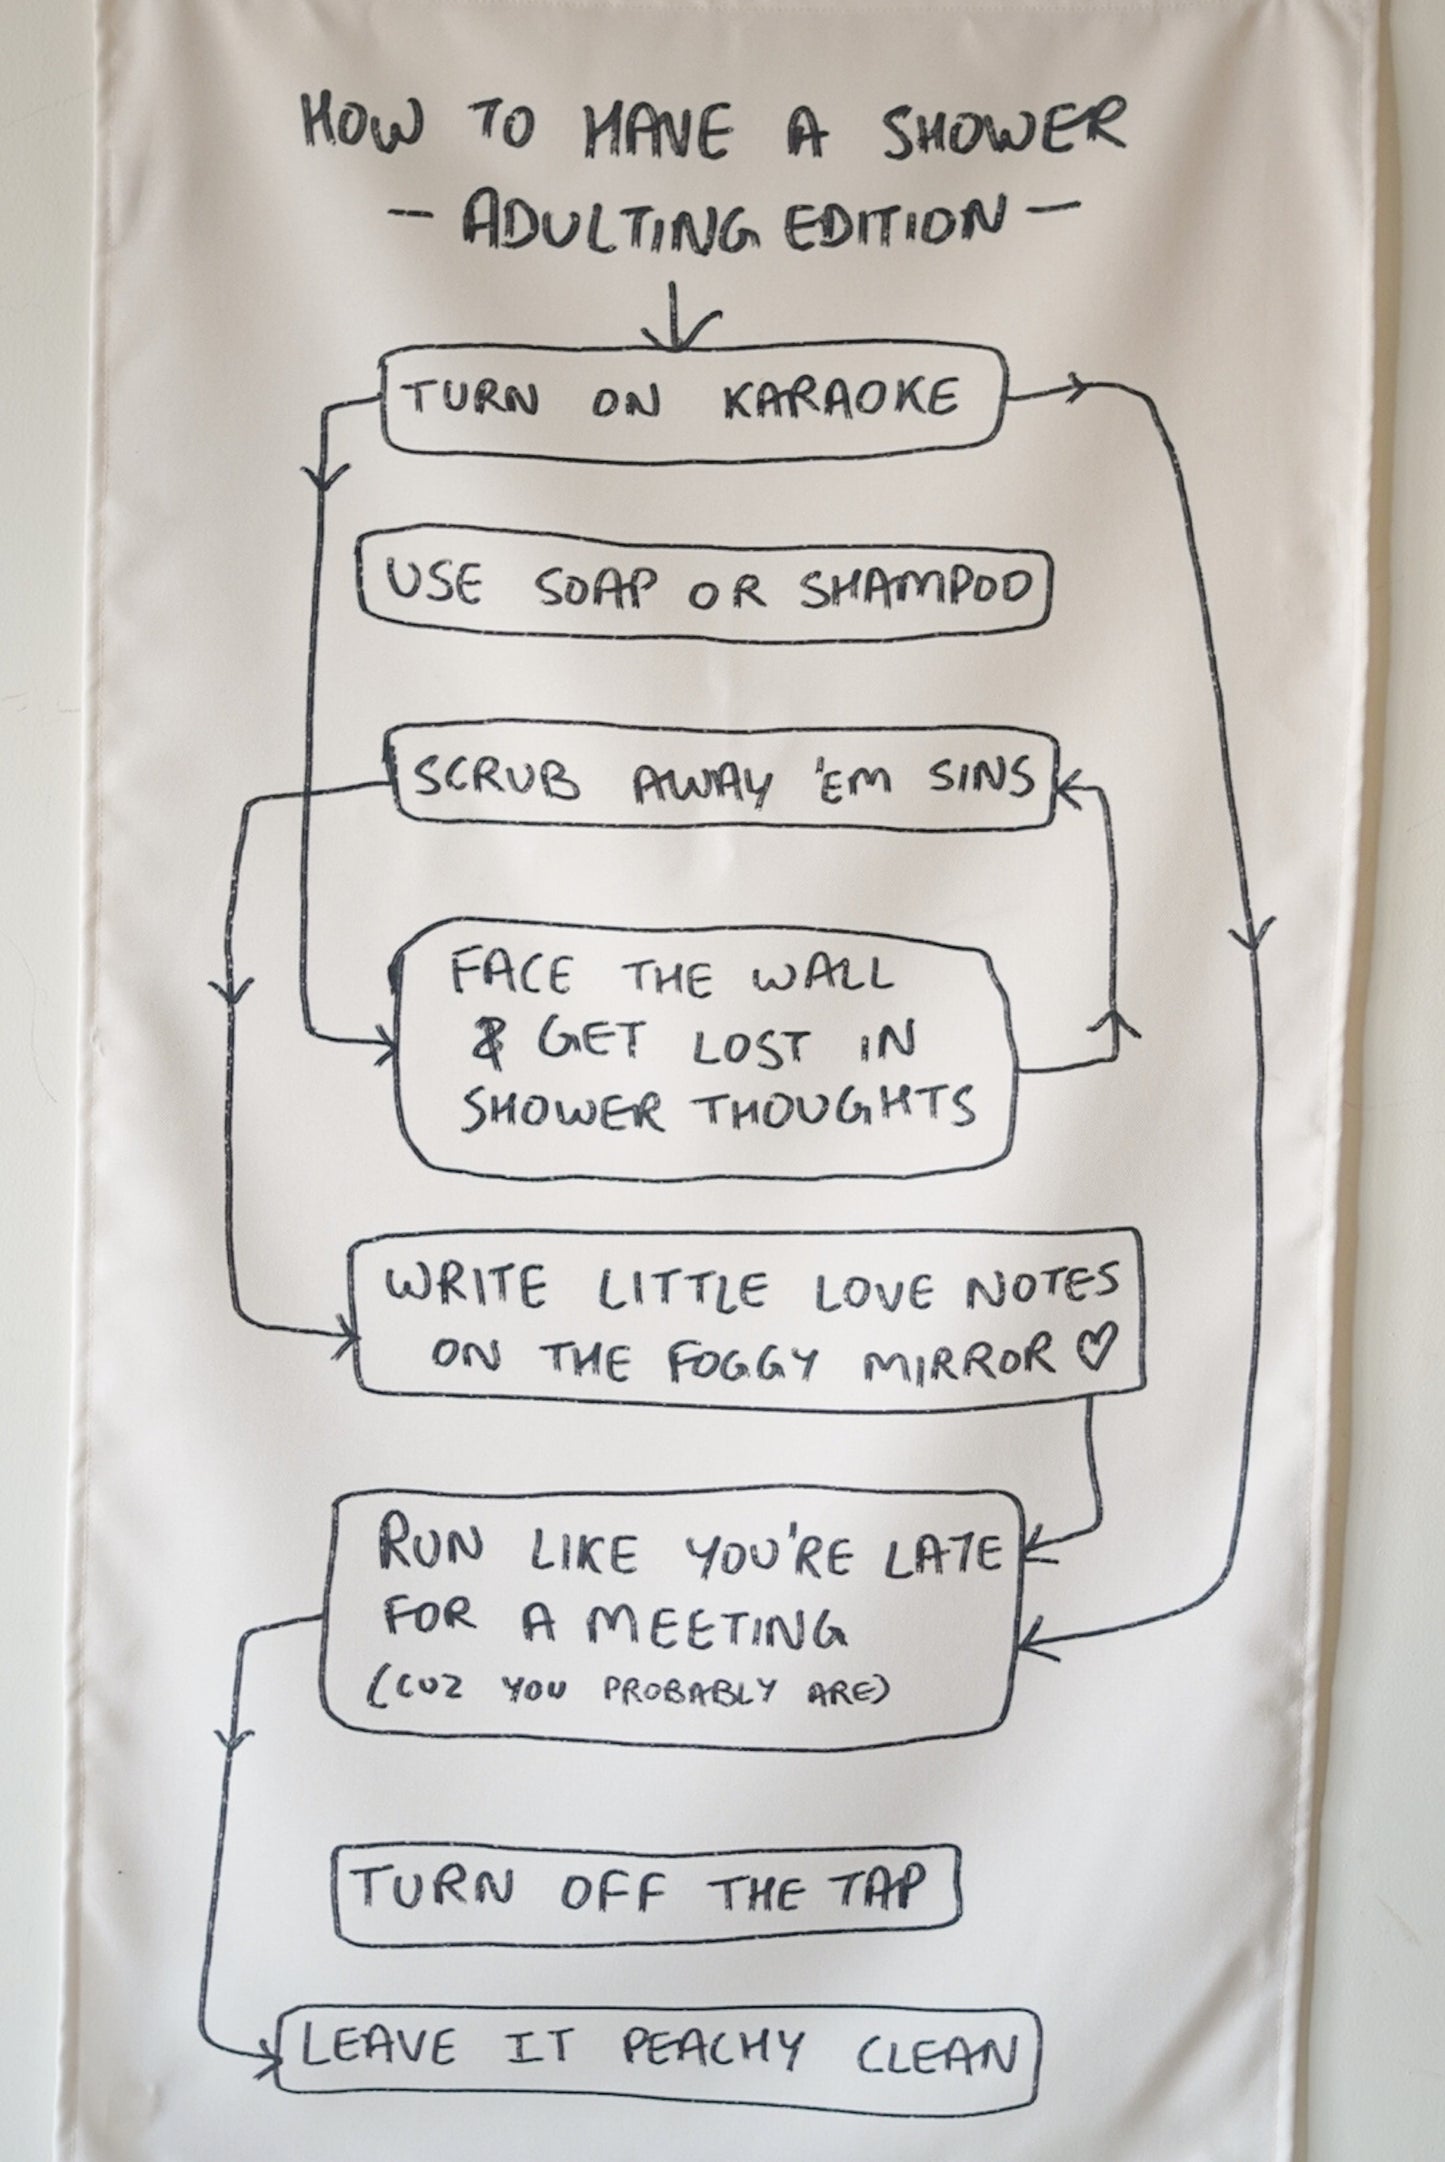 HOW TO HAVE A SHOWER
- ADULTING EDITION -
TURN ON KARAOKE
USE SOAP OR SHAMPOO
SCRUB AWAY 'EM SINS
FACE THE WALL
& GET LOST IN
SHOWER THOUGHTS
WRITE LITTLE LOVE NOTES
ON THE FOGGY MIRROR ♡
RUN LIKE YOU'RE LATE
FOR A MEETING
(CUZ YOU PROBABLY ARE)
TURN OFF THE TAP
LEAVE IT PEACHY CLEAN